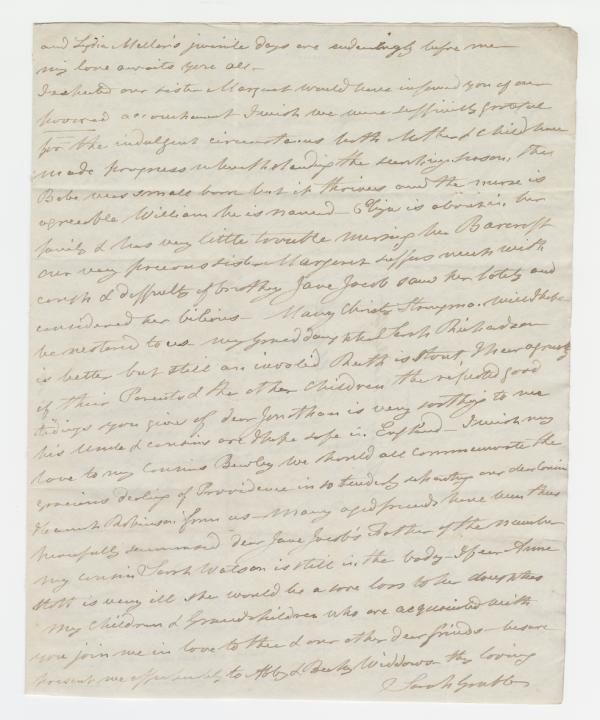 and Lydia Mellor's juvenile days are endearingly before me
my love awaits you all -
I expected our sister Margret would have informed you of our
hovered accouchment I wish we were sufficiently grateful
for the indulgent circumstances both Mother & Child have
made progress notwithstanding the season, the
Babe was small born but it thrives and the nurse is
agreeable William he is named - Eliza is about in her
family & has very little trouble nursing her Barcroft
our very precious sister Margaret suffers much with
cough & difficulty of breathing Jane Jacob saw her lately and
considered her bilious - Mary Christy will I hope
be restored to us my Grand daughter Sarah Richardson
is better but still an invalid Ruth is stout, I hear
of their Parents & the other Children the repeated good
tidings you give of dear Jonathan is very soothing to me
his Uncle & cousins are I hope safe in England - I wish my
love to my cousins Bewley we should all commemorate the
gracious dealing of Providence in so tenderly our dear Cousin
Robinson from us - Many aged friends have been thus
peacefully summoned dear Jane Jacob's Father of the number
my cousin Sarah Watson is still in the body - I fear Anne
Stott is very ill she would be a sore loss to her daughters
My Children & Grandchildren who are acquainted with
you join me in love to thee & our other dear friends
present me affectionately to Abby & Becky Widdows thy loving
Sarah Grubb